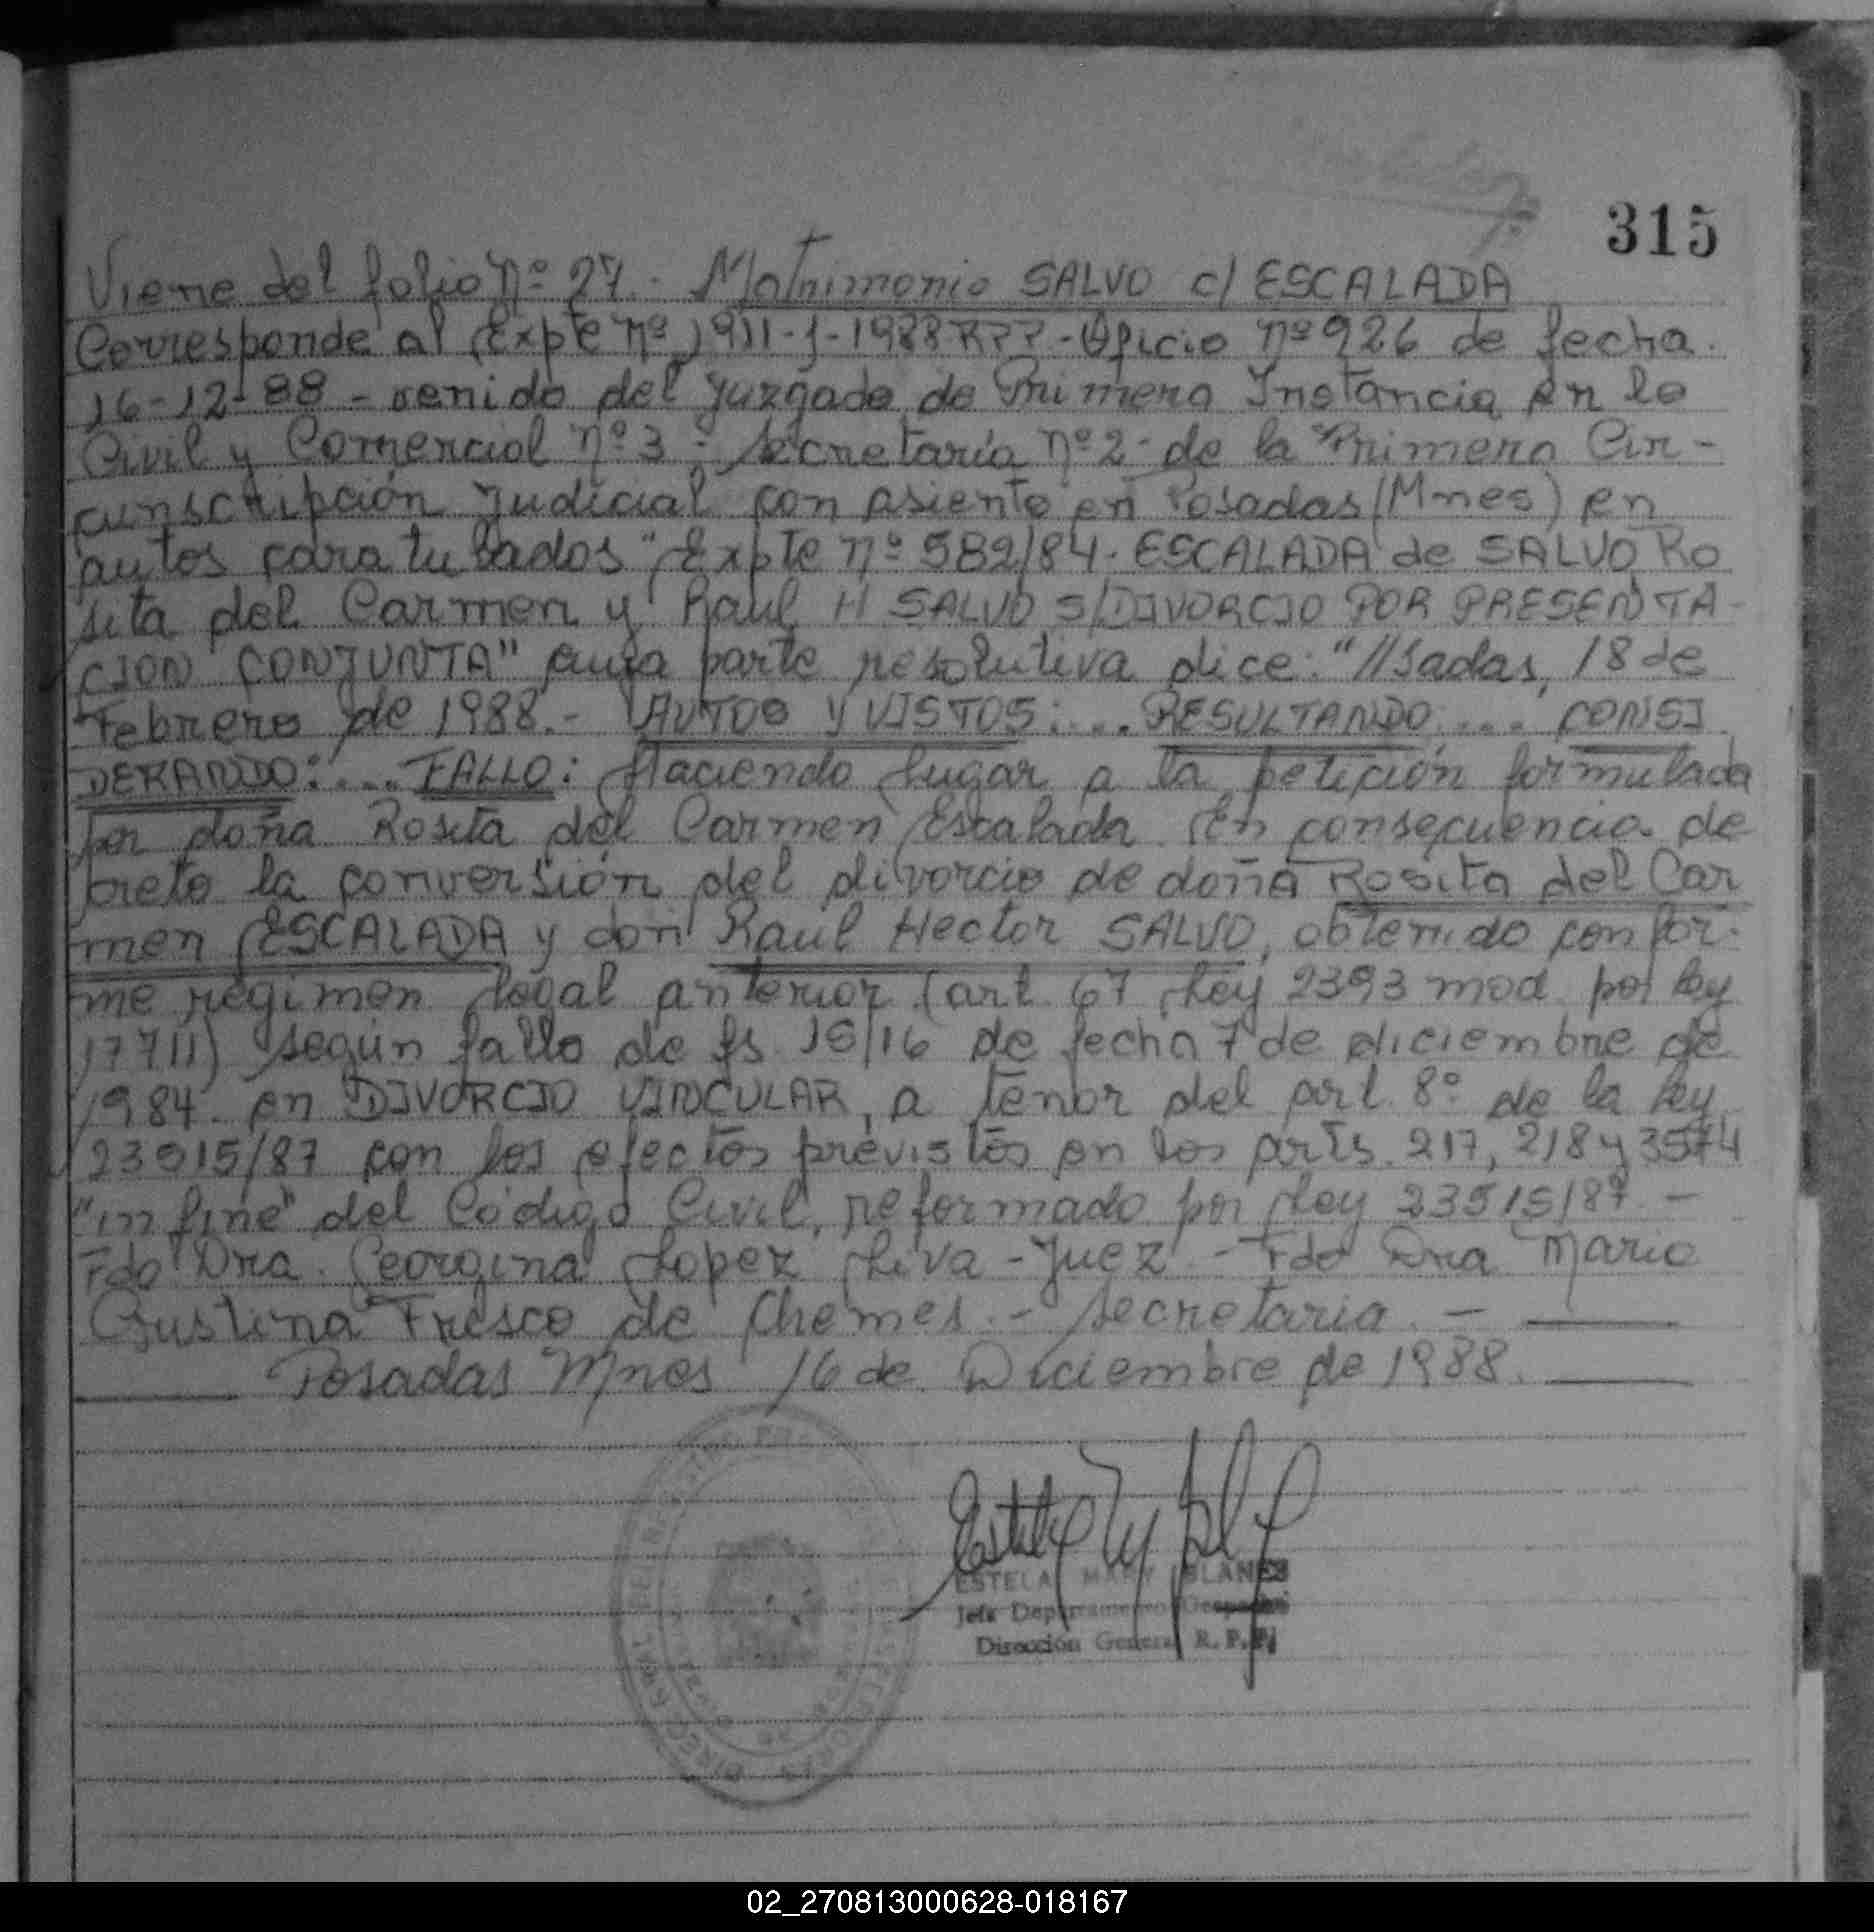 315
Viene del folio nº 27.- Matrimonio SALVO c/ ESCALADA
Corresponde al Expte nº 1911-J-1988 RPP - Oficio nº 926 de fecha
16-12-88 - venido del Juzgado de Primera Instancia en lo
Civil y Comercial nº 3 - Secretaría nº 2 - de la Primera Cir-
cunscripción Judicial con asiento en Posadas (Mnes) en
autos caratulados "Expte nº 582/84. ESCALADA de SALVO Ro
sita del Carmen y Raul H SALVO S/DIVORCIO POR PRESENTA-
CION CONJUNTA" cuya parte resolutiva dice: "//sadas, 18 de
Febrero de 1988.- AUTOS Y VISTOS: .... RESULTANDO: .... CONSI
DERANDO: .... FALLO: Haciendo lugar a la petición formulada
por doña Rosita del Carmen Escalada. En consecuencia de
creto la conversión del divorcio de doña Rosita del Car
men ESCALADA y don Raúl Hector SALVO, obtenido confor-
me régimen legal anterior (art. 67 Ley 2393 mod. por ley
17711) según fallo de fs. 15/16 de fecha 7 de diciembre de
1984. en DIVORCIO VINCULAR, a tenor del art. 8º de la Ley
23515/87 con los efectos previstos en los arts. 217, 218 y 3574
"in fine" del Código Civil, reformado por Ley 23515/87. -
Fdo Dra. Georgina Lopez Liva - Juez - Fdo Dra Maria
Cristina Fresco de Chemes. - Secretaria. -
Posadas Mnes 16 de Diciembre de 1988.
ESTELA MARY BLANES
Jefe Departamento
Dirección General R. P. P.
02_270813000628-018167